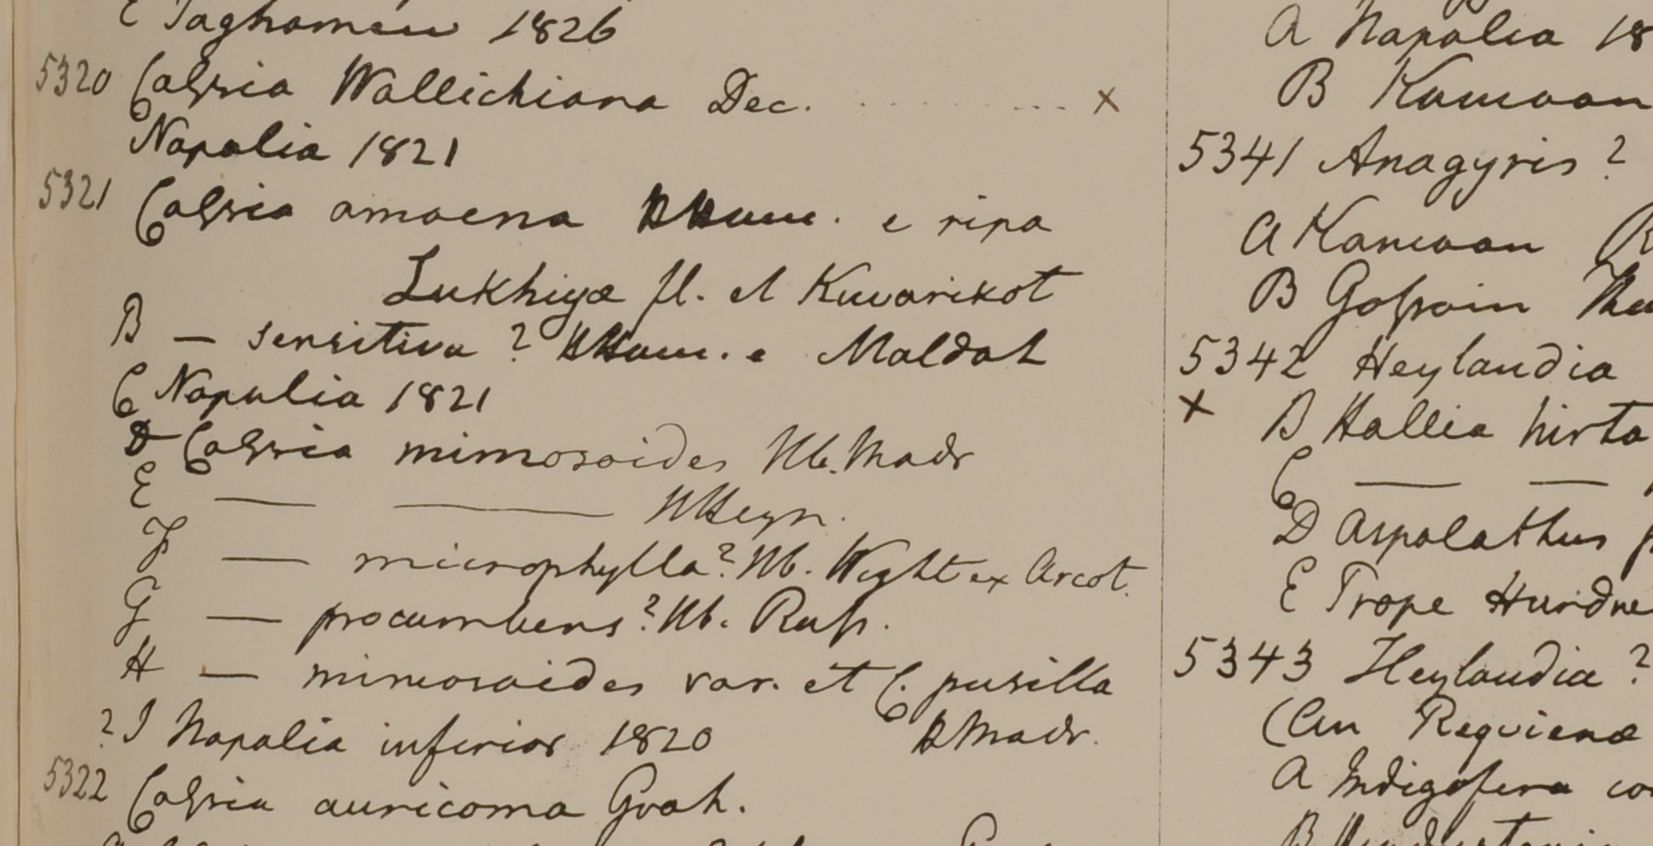 E Taghomeu 1826
5320 Cassia Wallichiana Dec. . . . . . . . . x
Napalia 1821
5321 Cassia amoena HHam. e ripa
Lukhiyæ fl. et Kuvarikot
B — sensitiva? HHam. e Maldah
C Napalia 1821
D Cassia mimosoides Hb. Madr
E — — HHeyn.
F — microphylla? Hb. Wight ex Arcot.
G — procumbens? Hb. Russ.
H — mimosoides var. et C. pusilla
HMadr.
? I Napalia inferior 1820
5322 Cassia auricoma Grah.
A Napalia 18
B Kamaon
5341 Anagyris ?
A Kamaon R
B Gossain
5342 Heylandia
x B Hallia hirta
C — —
D Aspalathus
E Trope Hurdw
5343 Heylandia ?
(An Requienæ
A Indigofera co